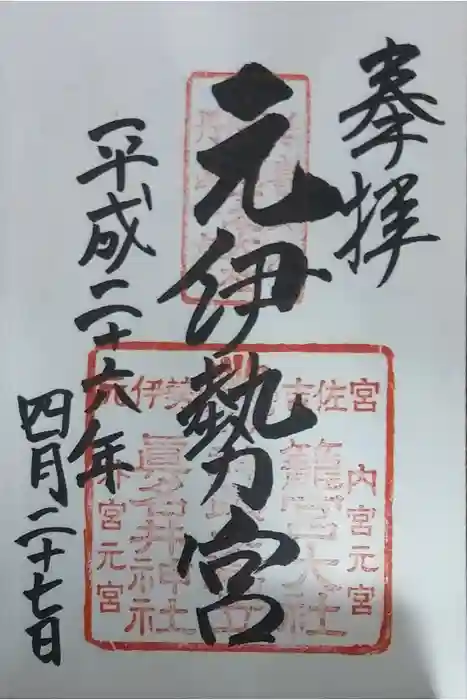 奉拝
元伊勢宮
平成二十六年
四月二十七日
宮佐吉
伊勢
内宮元宮
籠宮大社
眞名井神社
外宮元宮